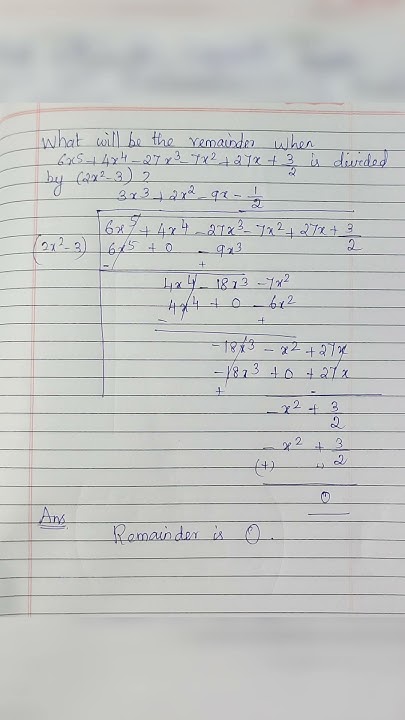 What will be the remainder when
6x⁵ + 4x⁴ - 27x³ - 7x² + 27x + 3/2 is divided
by (2x² - 3) ?
3x³ + 2x² - 9x - 1/2
(2x² - 3) 6x⁵ + 4x⁴ - 27x³ - 7x² + 27x + 3/2
6x⁵ + 0 - 9x³
- +
4x⁴ - 18x³ - 7x²
4x⁴ + 0 - 6x²
- +
-18x³ - x² + 27x
-18x³ + 0 + 27x
+ -
-x² + 3/2
-x² + 3/2
(+)
0
Ans
Remainder is 0.